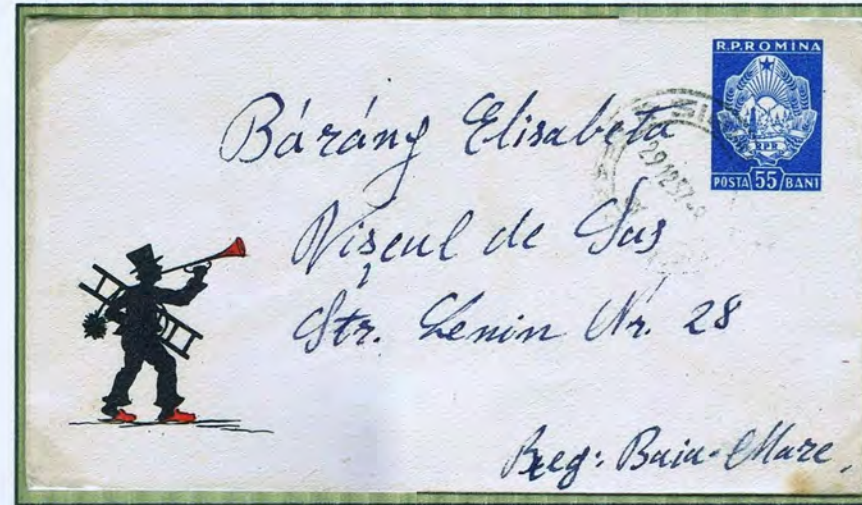 R.P.ROMINA
RPR
POSTA 55 BANI
29.12.57
Báráng Elisabeta
Vişeul de Sus
Str. Lenin Nr. 28
Reg: Baia-Mare.